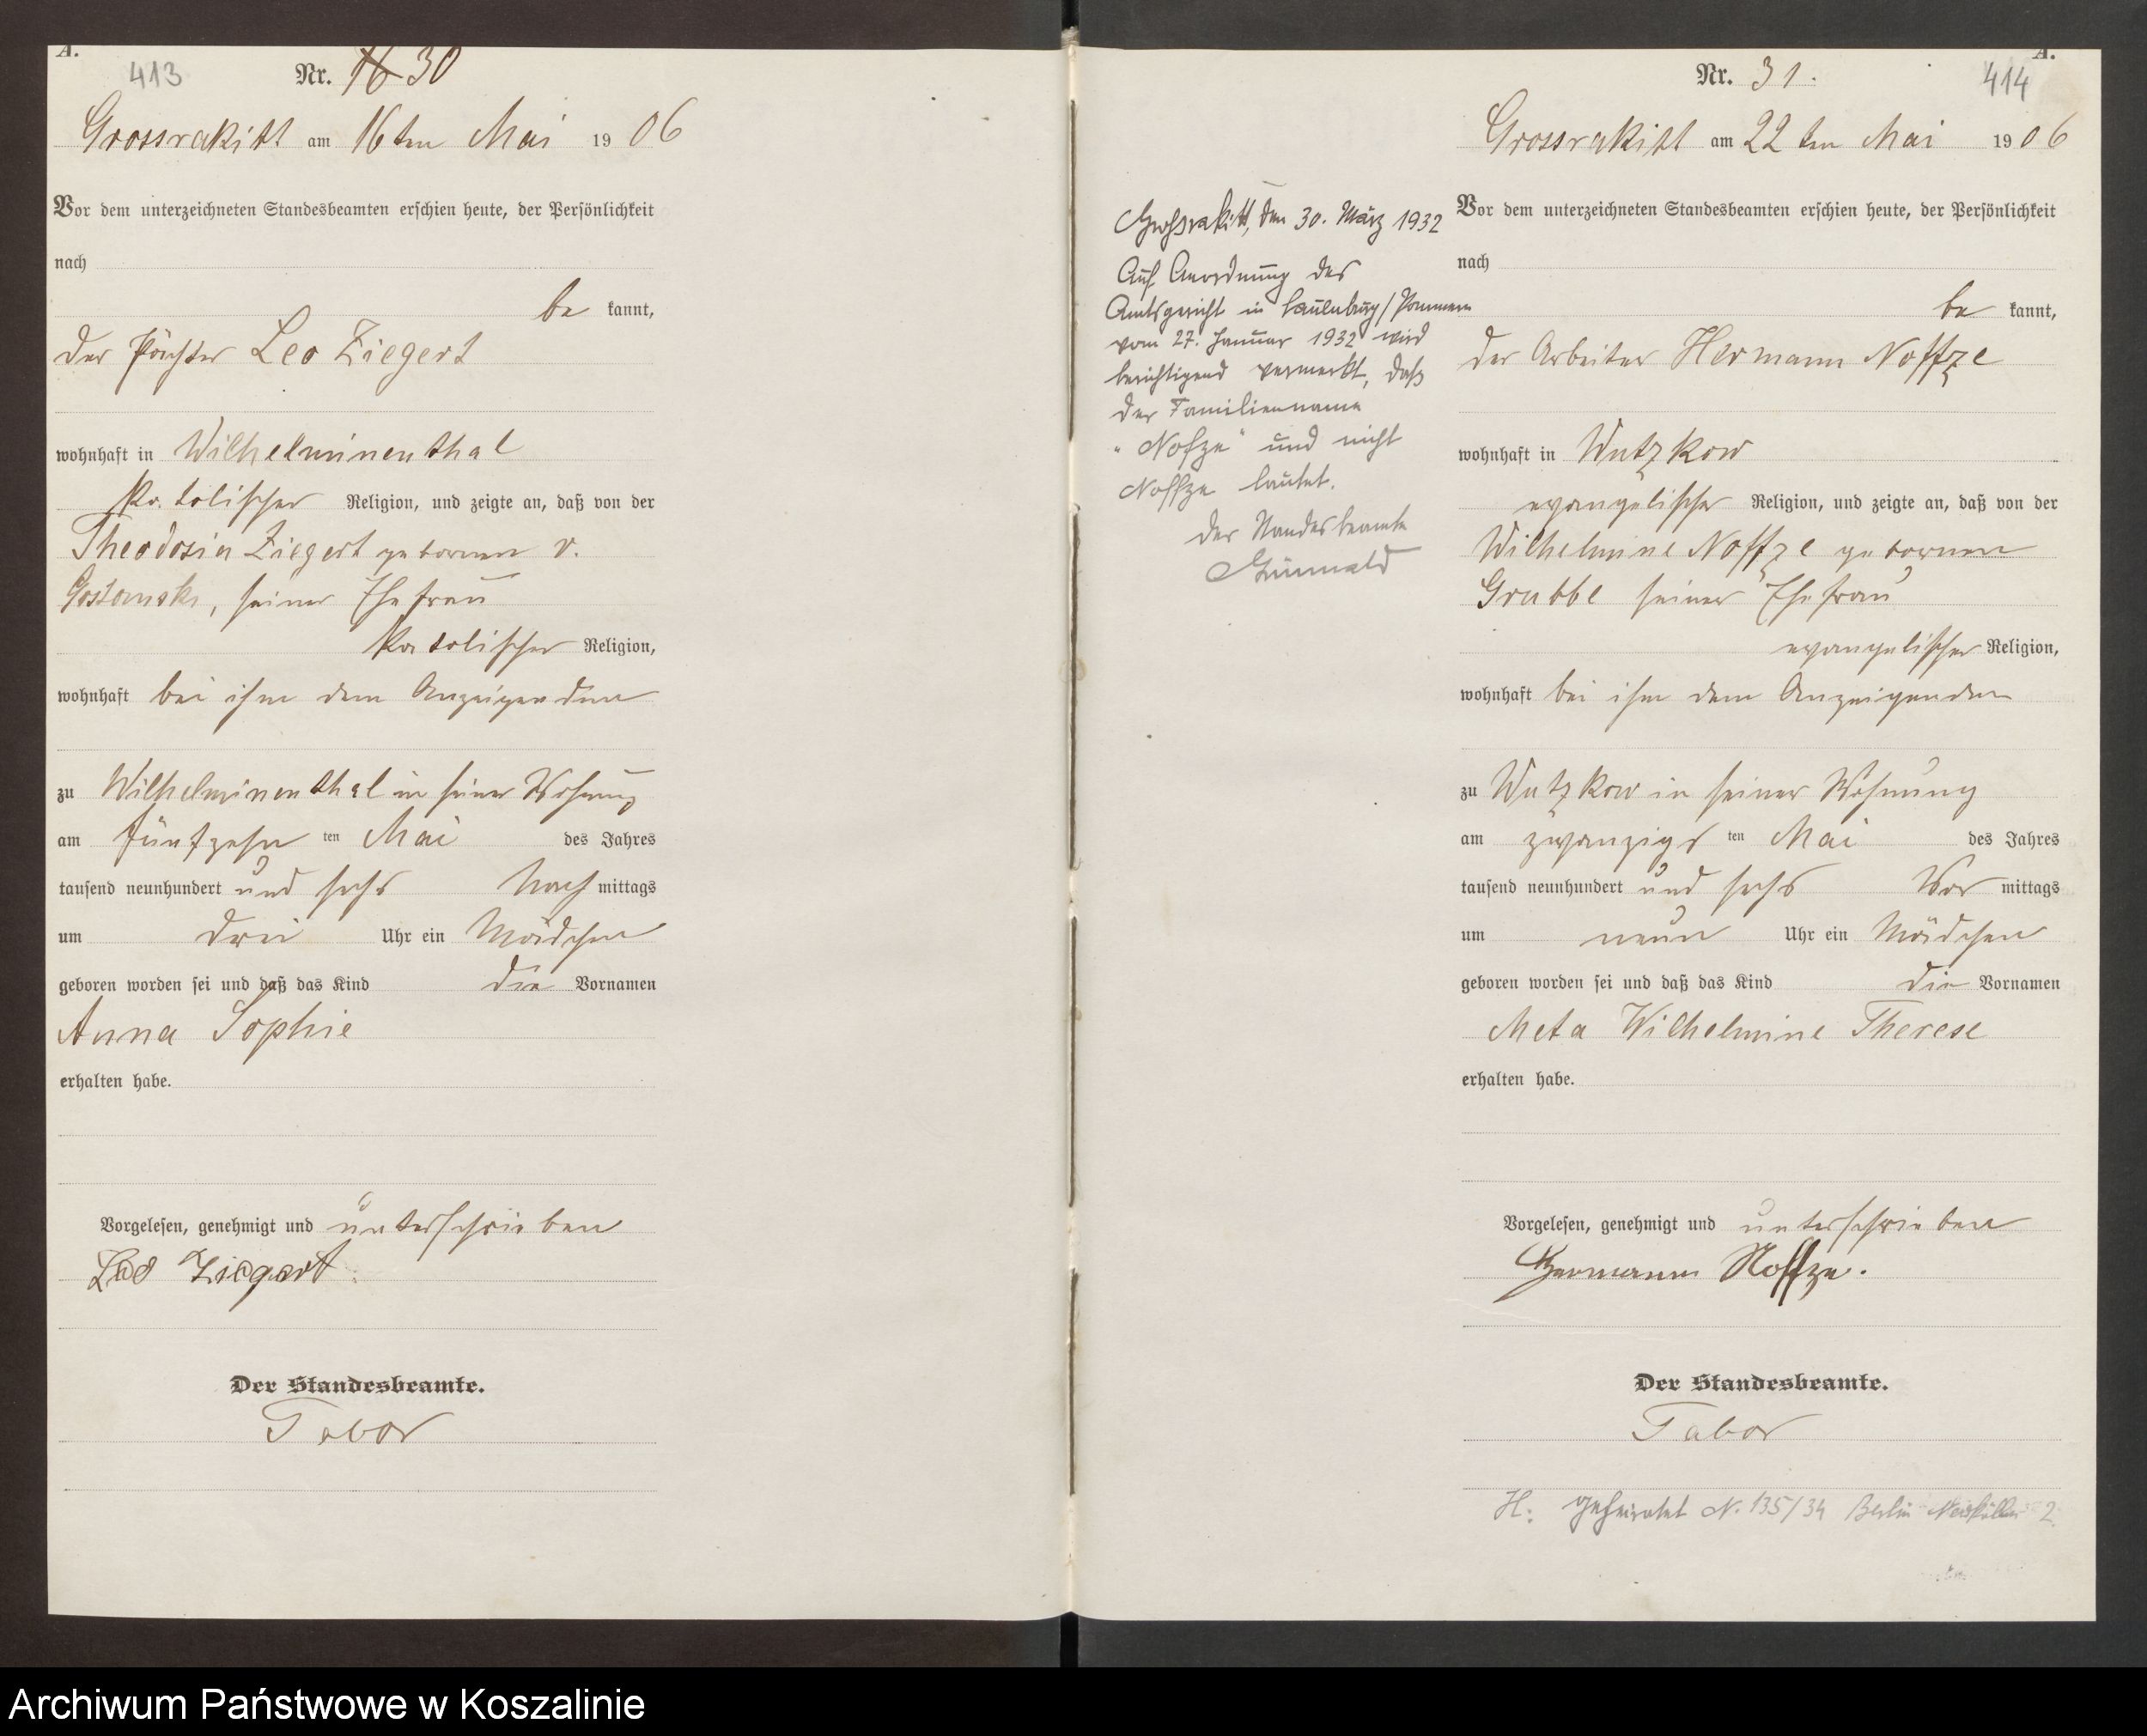 A.
413
Nr. 16 30
Grossrakitt am 16ten Mai 1906
Vor dem unterzeichneten Standesbeamten erschien heute, der Persönlichkeit
nach
be kannt,
der Pächter Leo Ziegert
wohnhaft in Wilhelminenthal
katolischer Religion, und zeigte an, daß von der
Theodosia Ziegert geborenen v.
Gostomski, seiner Ehefrau
katolischer Religion,
wohnhaft bei ihm dem Anzeigenden
zu Wilhelminenthal in seiner Wohnung
am fünfzehn ten Mai des Jahres
tausend neunhundert und sechs Nach mittags
um drei Uhr ein Mädchen
geboren worden sei und daß das Kind die Vornamen
Anna Sophie
erhalten habe.
Vorgelesen, genehmigt und unterschrieben
Leo Ziegert.
Der Standesbeamte.
Tabor
Großrakitt, den 30. März 1932
Auf Anordnung des
Amtsgericht in Lauenburg/Pommern
vom 27. Januar 1932 wird
berichtigend vermerkt, daß
der Familienname
"Nofze" und nicht
Noffze lautet.
Der Standesbeamte
Grünwald
A.
Nr. 31.
414
Grossrakitt am 22ten Mai 1906
Vor dem unterzeichneten Standesbeamten erschien heute, der Persönlichkeit
nach
be kannt,
der Arbeiter Hermann Noffze
wohnhaft in Wutzkow
evangelischer Religion, und zeigte an, daß von der
Wilhelmine Noffze geborenen
Grubbe seiner Ehefrau
evangelischer Religion,
wohnhaft bei ihm dem Anzeigenden
zu Wutzkow in seiner Wohnung
am zwanzigs ten Mai des Jahres
tausend neunhundert und sechs Vor mittags
um neun Uhr ein Mädchen
geboren worden sei und daß das Kind die Vornamen
Meta Wilhelmine Therese
erhalten habe.
Vorgelesen, genehmigt und unterschrieben
Hermann Noffze.
Der Standesbeamte.
Tabor
H: geheiratet N. 135/34 Berlin Neukölln 2.
Archiwum Państwowe w Koszalinie